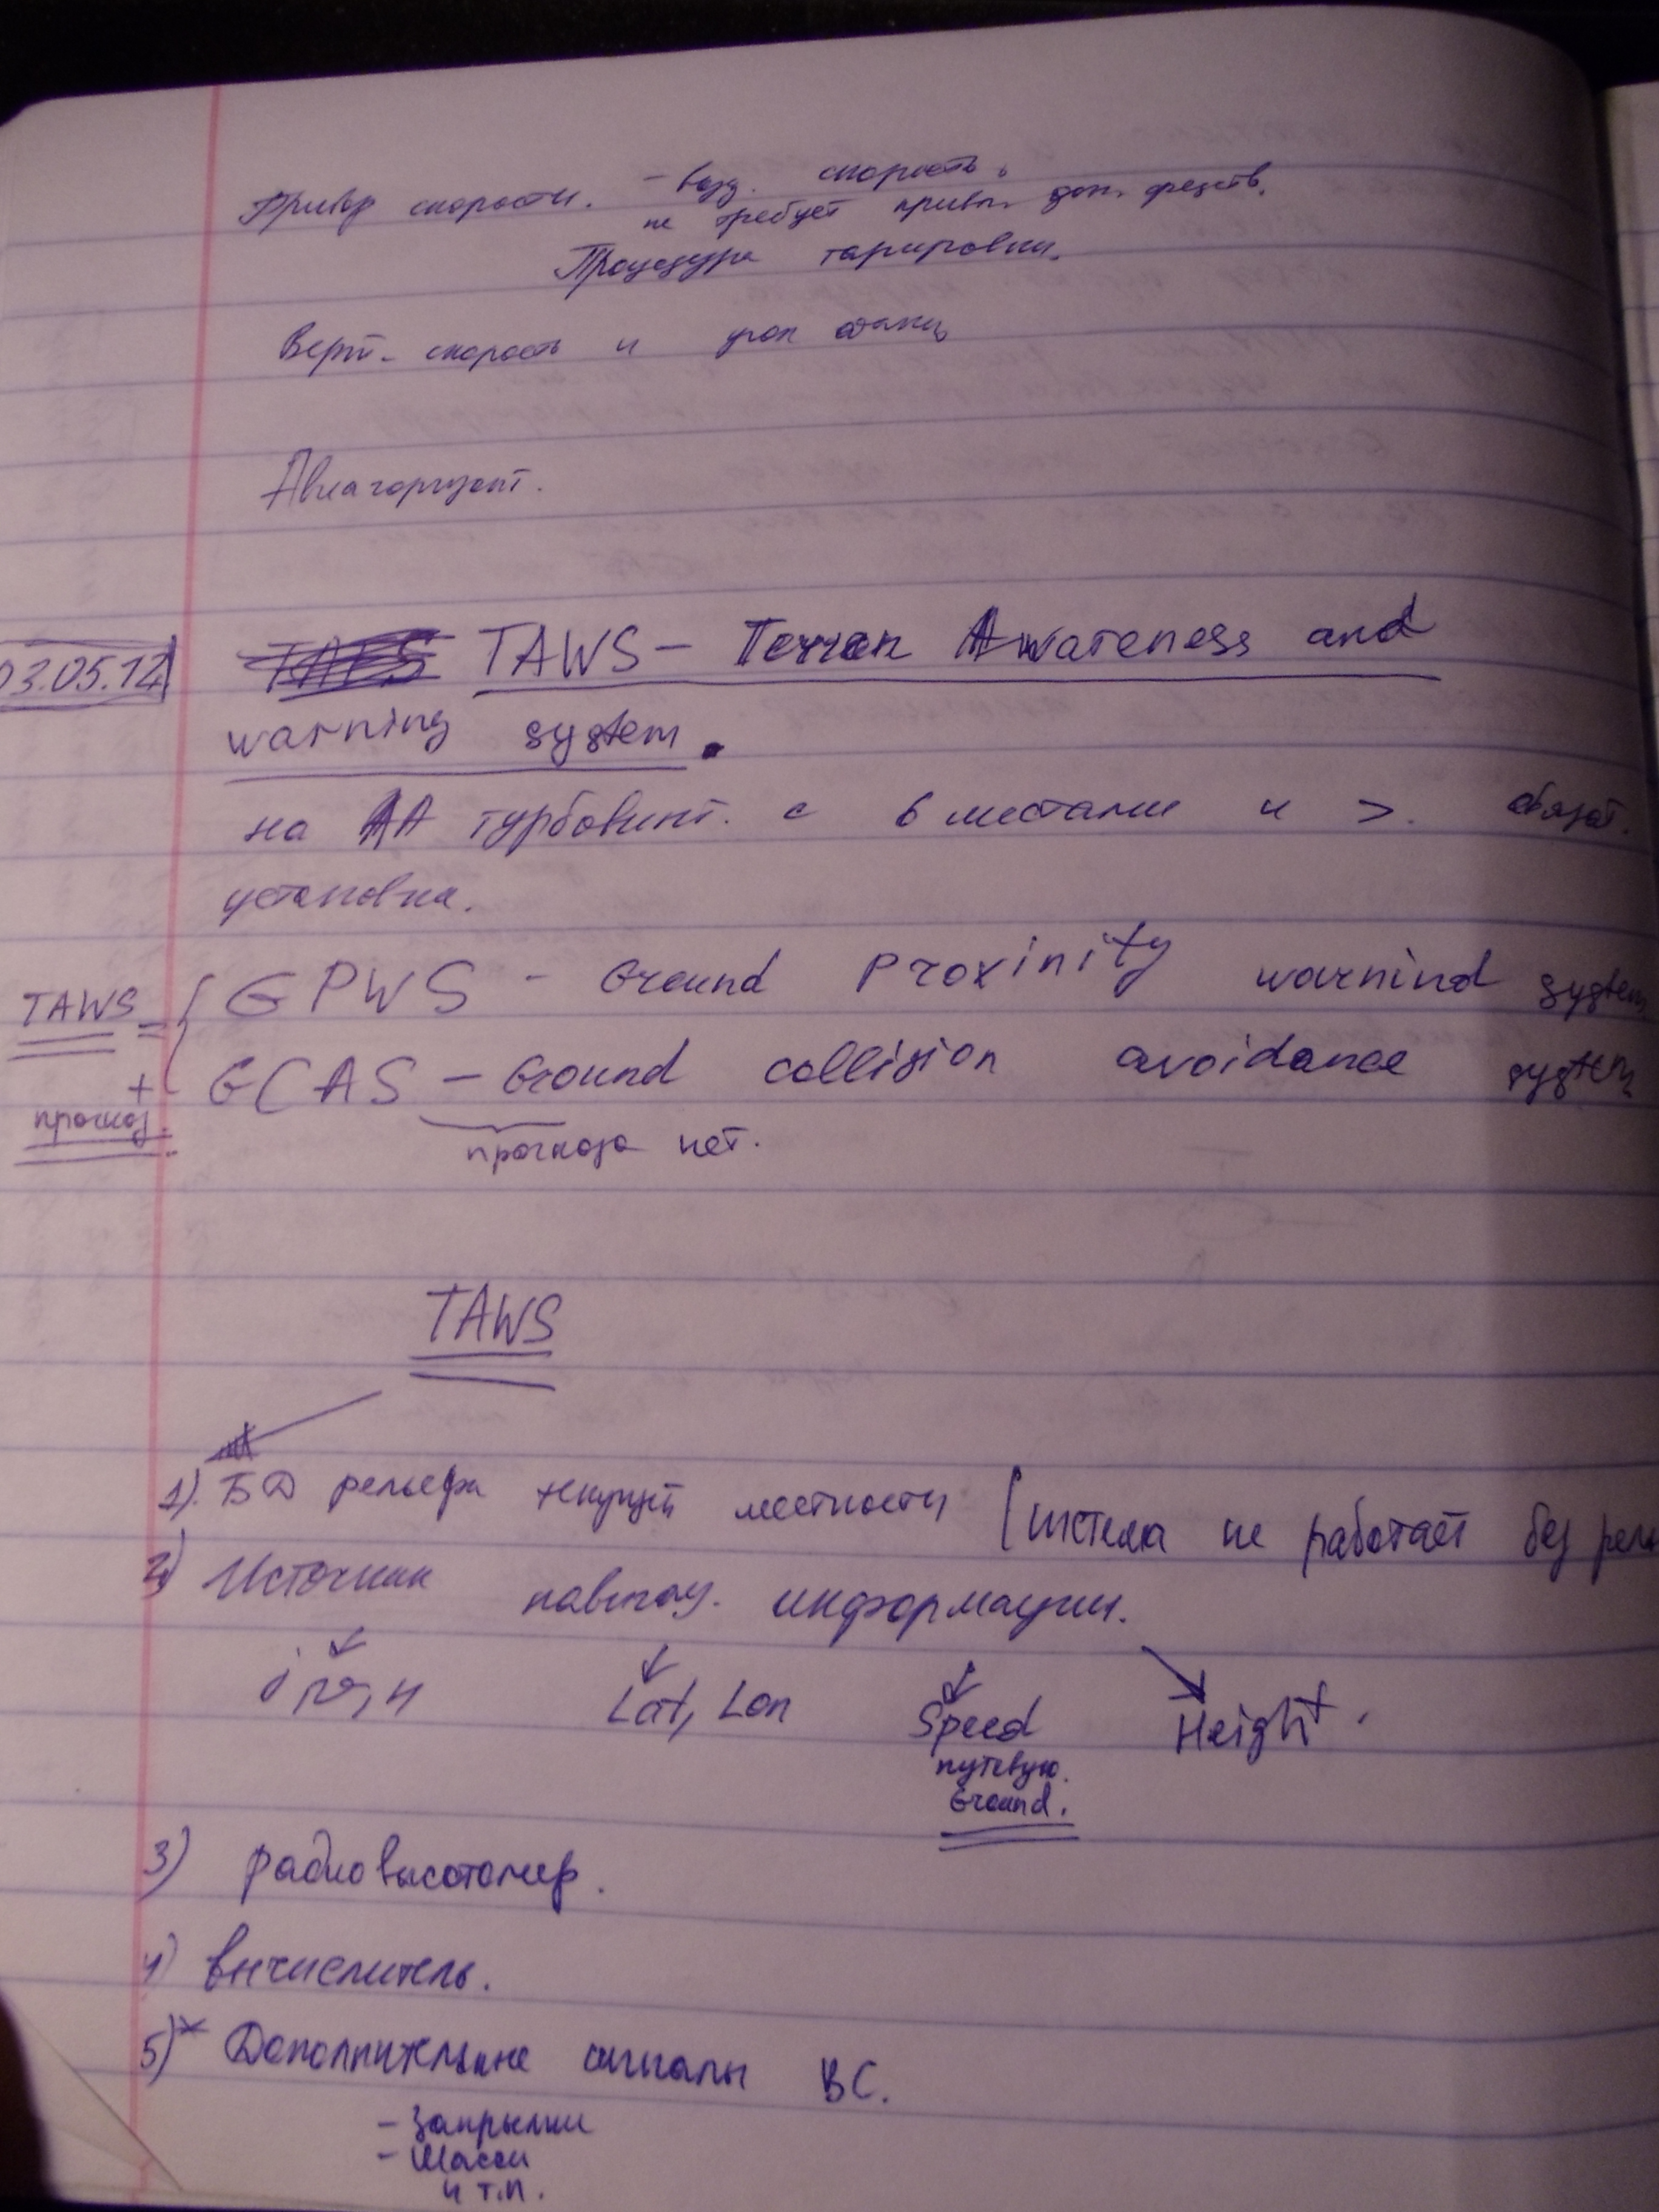 Прибор скорости. – возд. скорость.
не требует прив. доп. средств.
Процедура тарировки.
Верт. скорость и угол атаки
Авиагоризонт.
03.05.12
TAWS – Terran Awareness and
warning system.
на ЛА турбовинт. с 6 местами и >. обязат.
установка.
TAWS = { GPWS - Ground Proxinity warnind system
+ GCAS – Ground collision avoidance system
прогноз.
прогноза нет.
TAWS
1). БД рельефа текущей местности (система не работает без рель
2) Источник навигац. информации.
Lat, Lon
Speed
Height.
путевую.
Ground.
3) радиовысотомер.
4) вычислитель.
5)* Дополнительные сигналы ВС.
- Закрылки
- Шасси
и т.п.